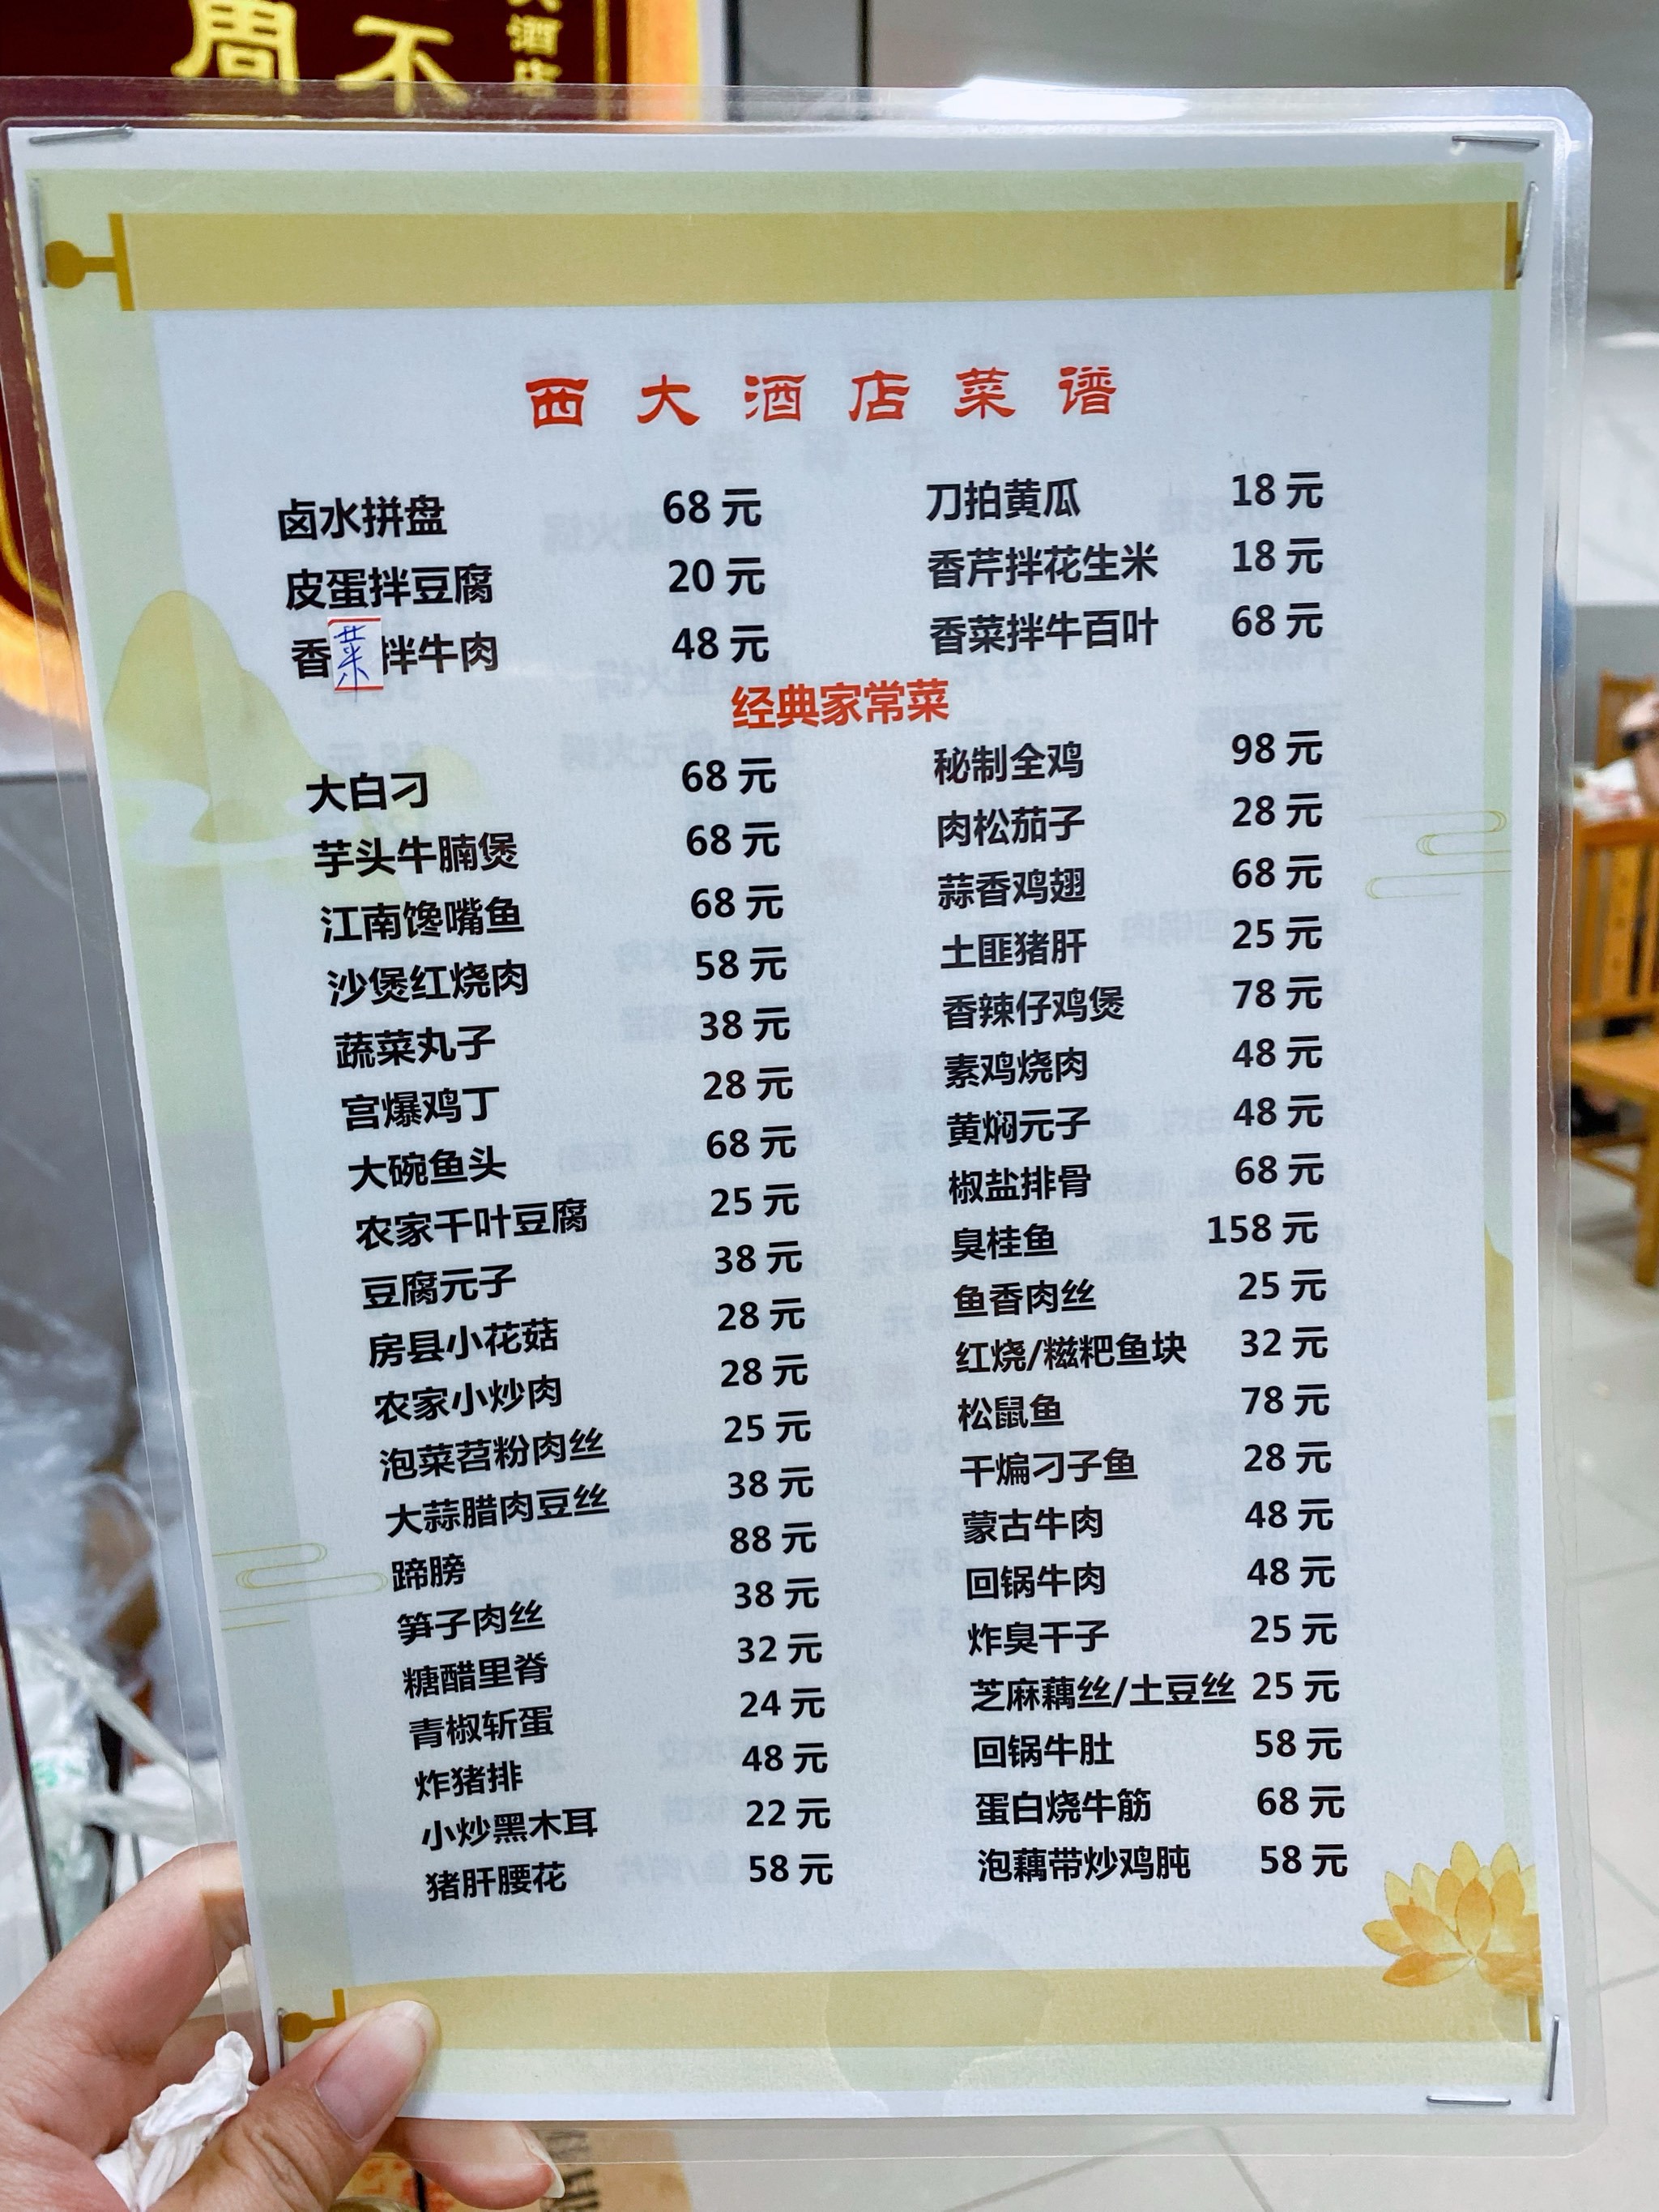 周不
大酒店
西大酒店菜谱
卤水拼盘 68元 刀拍黄瓜 18元
皮蛋拌豆腐 20元 香芹拌花生米 18元
香菜拌牛肉 48元 香菜拌牛百叶 68元
经典家常菜
大白刁 68元 秘制全鸡 98元
芋头牛腩煲 68元 肉松茄子 28元
江南馋嘴鱼 68元 蒜香鸡翅 68元
沙煲红烧肉 58元 土匪猪肝 25元
蔬菜丸子 38元 香辣仔鸡煲 78元
宫爆鸡丁 28元 素鸡烧肉 48元
大碗鱼头 68元 黄焖元子 48元
农家千叶豆腐 25元 椒盐排骨 68元
豆腐元子 38元 臭桂鱼 158元
房县小花菇 28元 鱼香肉丝 25元
农家小炒肉 28元 红烧/糍粑鱼块 32元
泡菜苕粉肉丝 25元 松鼠鱼 78元
大蒜腊肉豆丝 38元 干煸刁子鱼 28元
蹄膀 88元 蒙古牛肉 48元
笋子肉丝 38元 回锅牛肉 48元
糖醋里脊 32元 炸臭干子 25元
青椒斩蛋 24元 芝麻藕丝/土豆丝 25元
炸猪排 48元 回锅牛肚 58元
小炒黑木耳 22元 蛋白烧牛筋 68元
猪肝腰花 58元 泡藕带炒鸡肫 58元